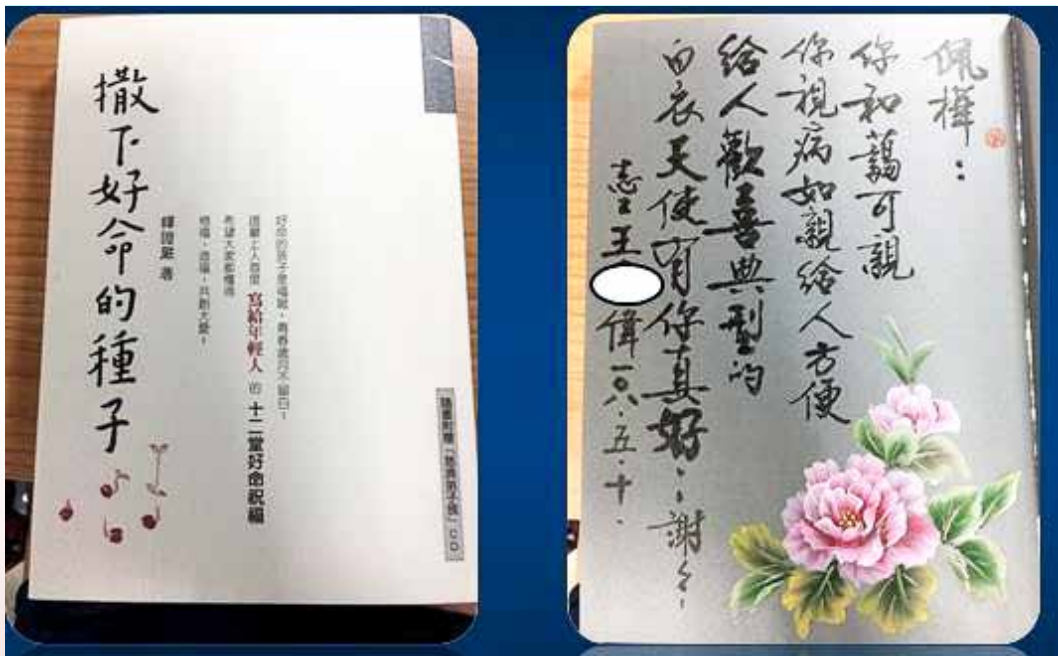 撒下好命的種子
釋證嚴 著
好命的孩子是福報，青春歲月不留白！
證嚴上人首度 寫給年輕人 的 十二堂好命祝福
希望大家都懂得
惜福、造福，共創大愛。
隨書附贈 弟子規」CD
佩樺：
你和藹可親
你視病如親給人方便
給人歡喜典型的
白衣天使有你真好，謝々。
志工王 偉一〇八.五.十.